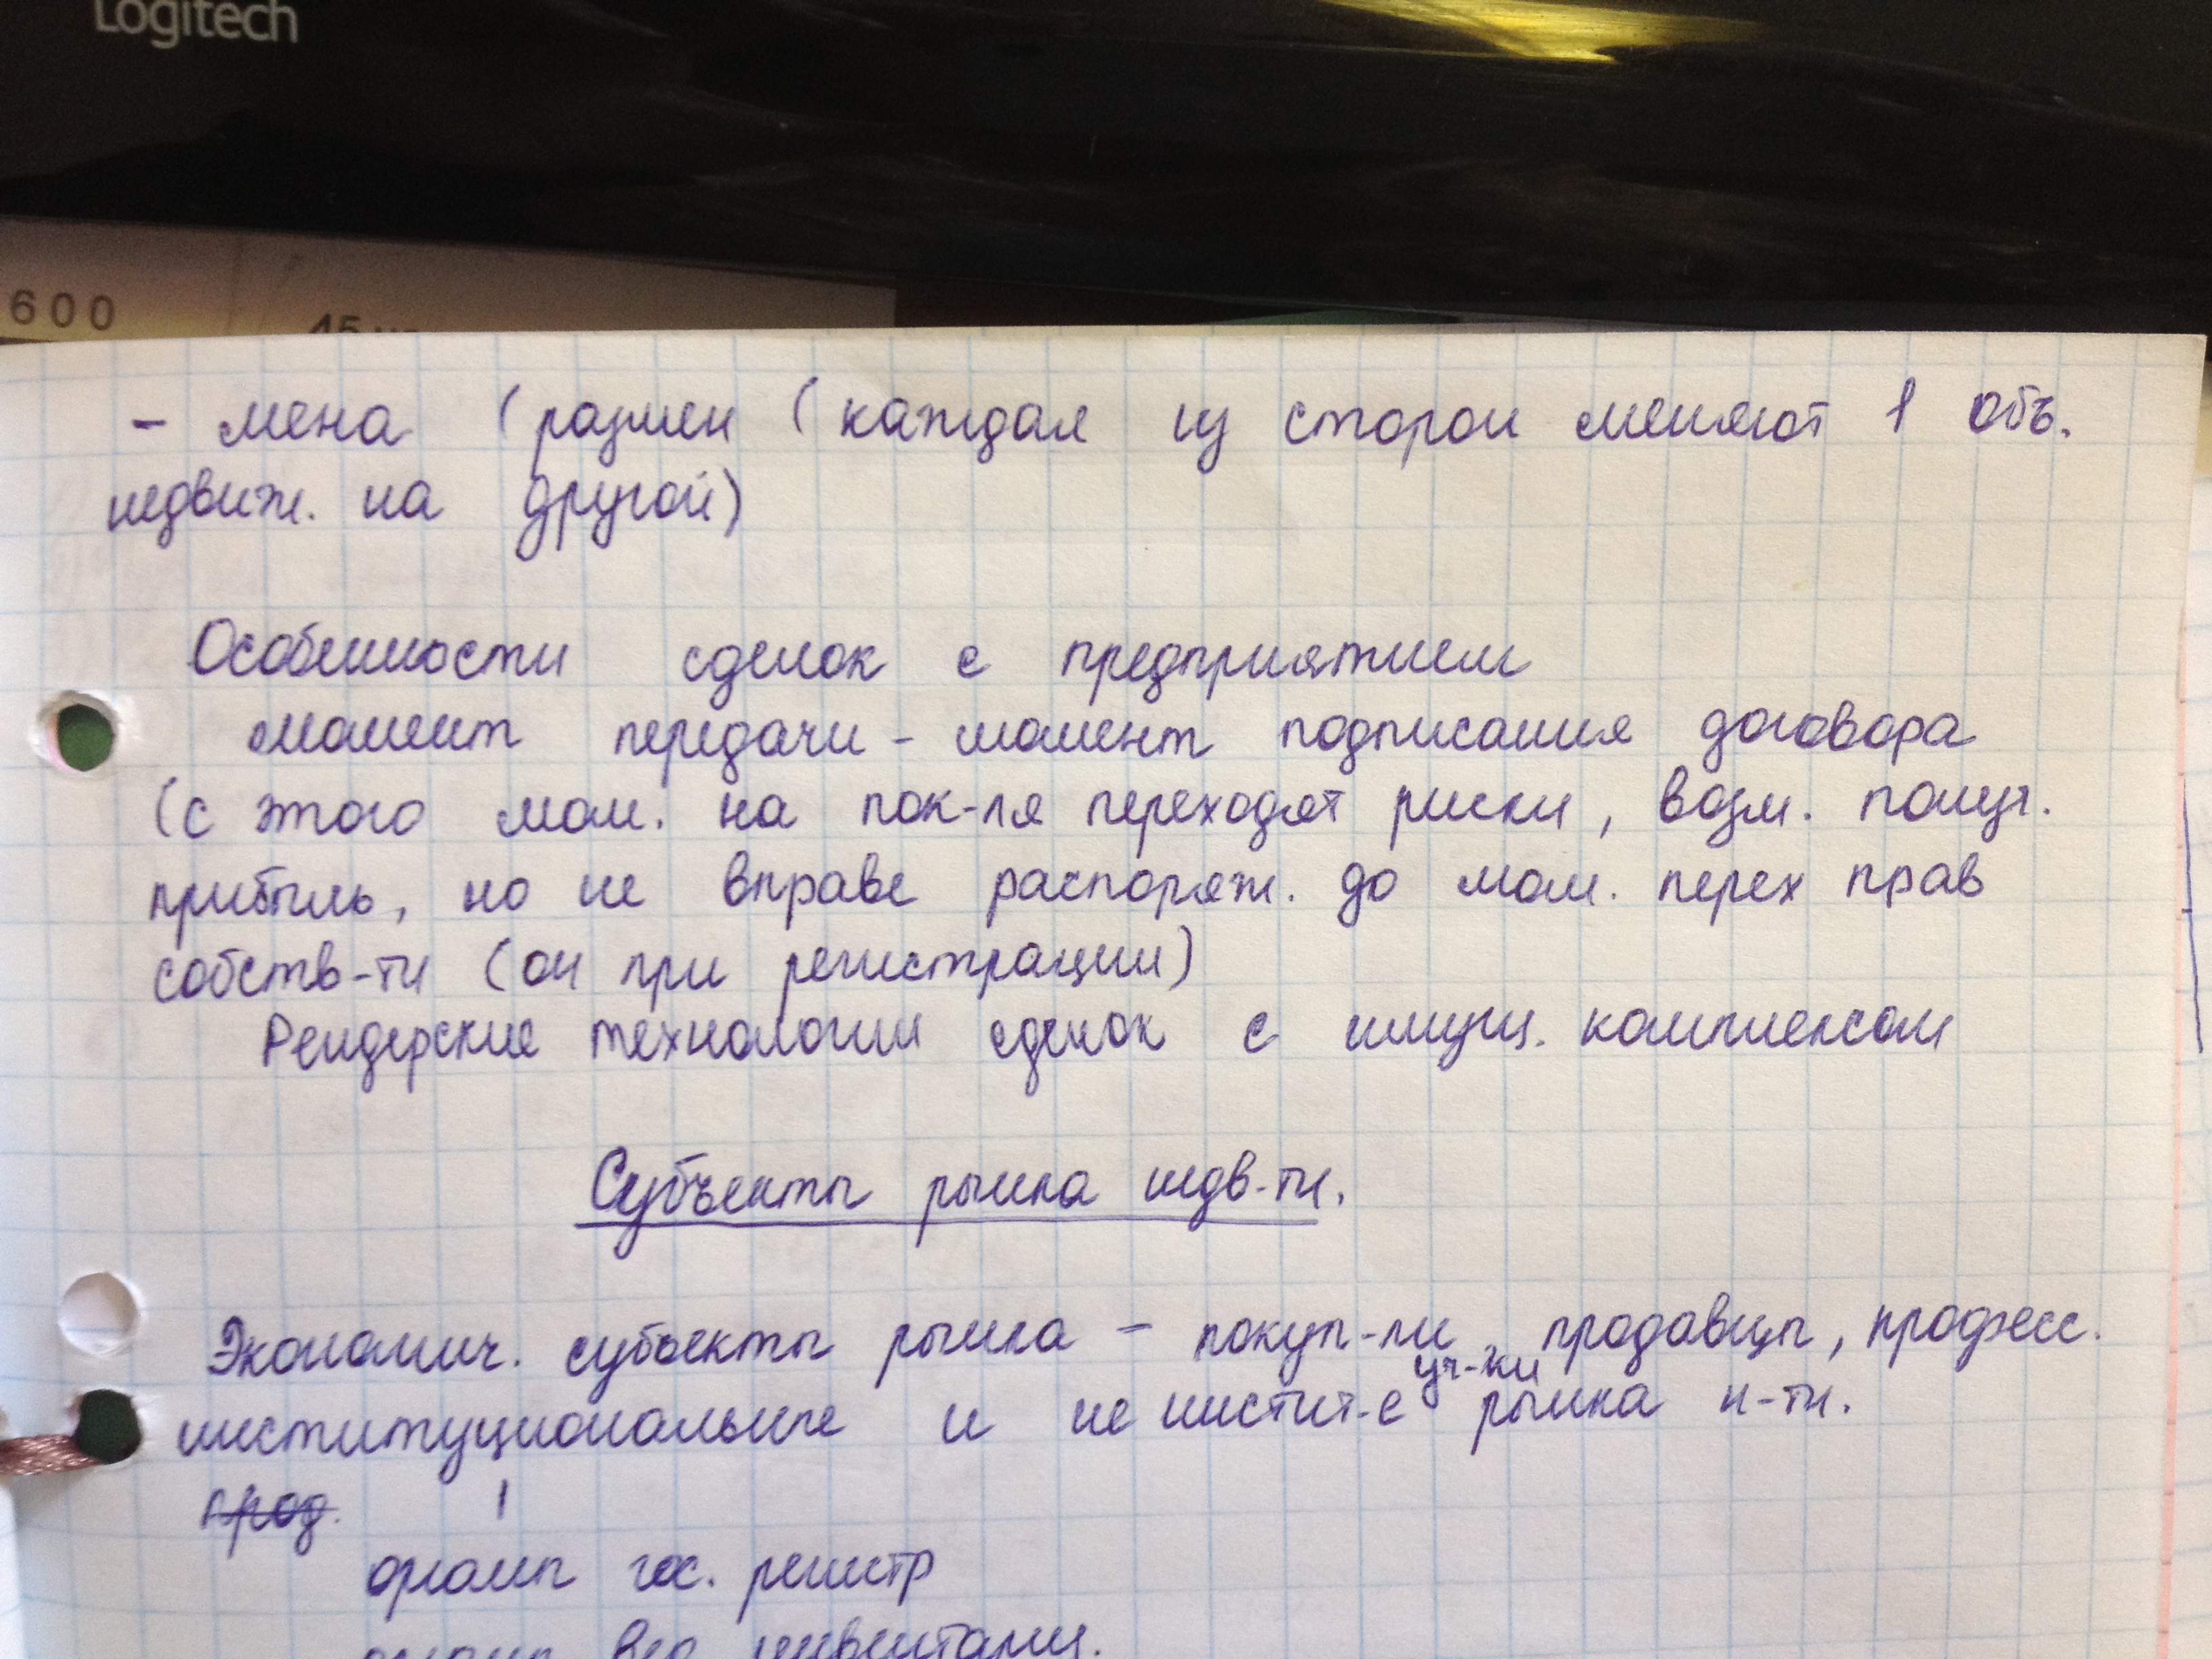 Logitech
600
45
- мена (размен (каждая из сторон меняют 1 объ.
недвиж. на другой)
Особенности сделок с предприятием
момент передачи - момент подписания договора
(с этого мом. на пок-ля переходят риски, возм. получ.
прибыль, но не вправе распоряж. до мом. перех прав
собств-ти (он при регистрации)
Рейдерские технологии сделок с имущ. комплексом
Субъекты рынка недв-ти.
Экономич. субъекты рынка - покуп-ли, продавцы, професс.
уч-ки
институциональные и не инстит-е рынка н-ти.
прод.
органы гос. регистр
органы инвентариз.